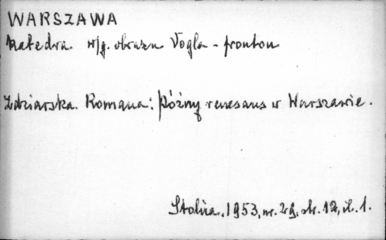 WARSZAWA
Katedra w/g. obrazu Vogla - fronton
Zdziarska. Romana: Późny renesans w Warszawie.
Stolica, 1953, nr. 29, str. 12, il. 1.